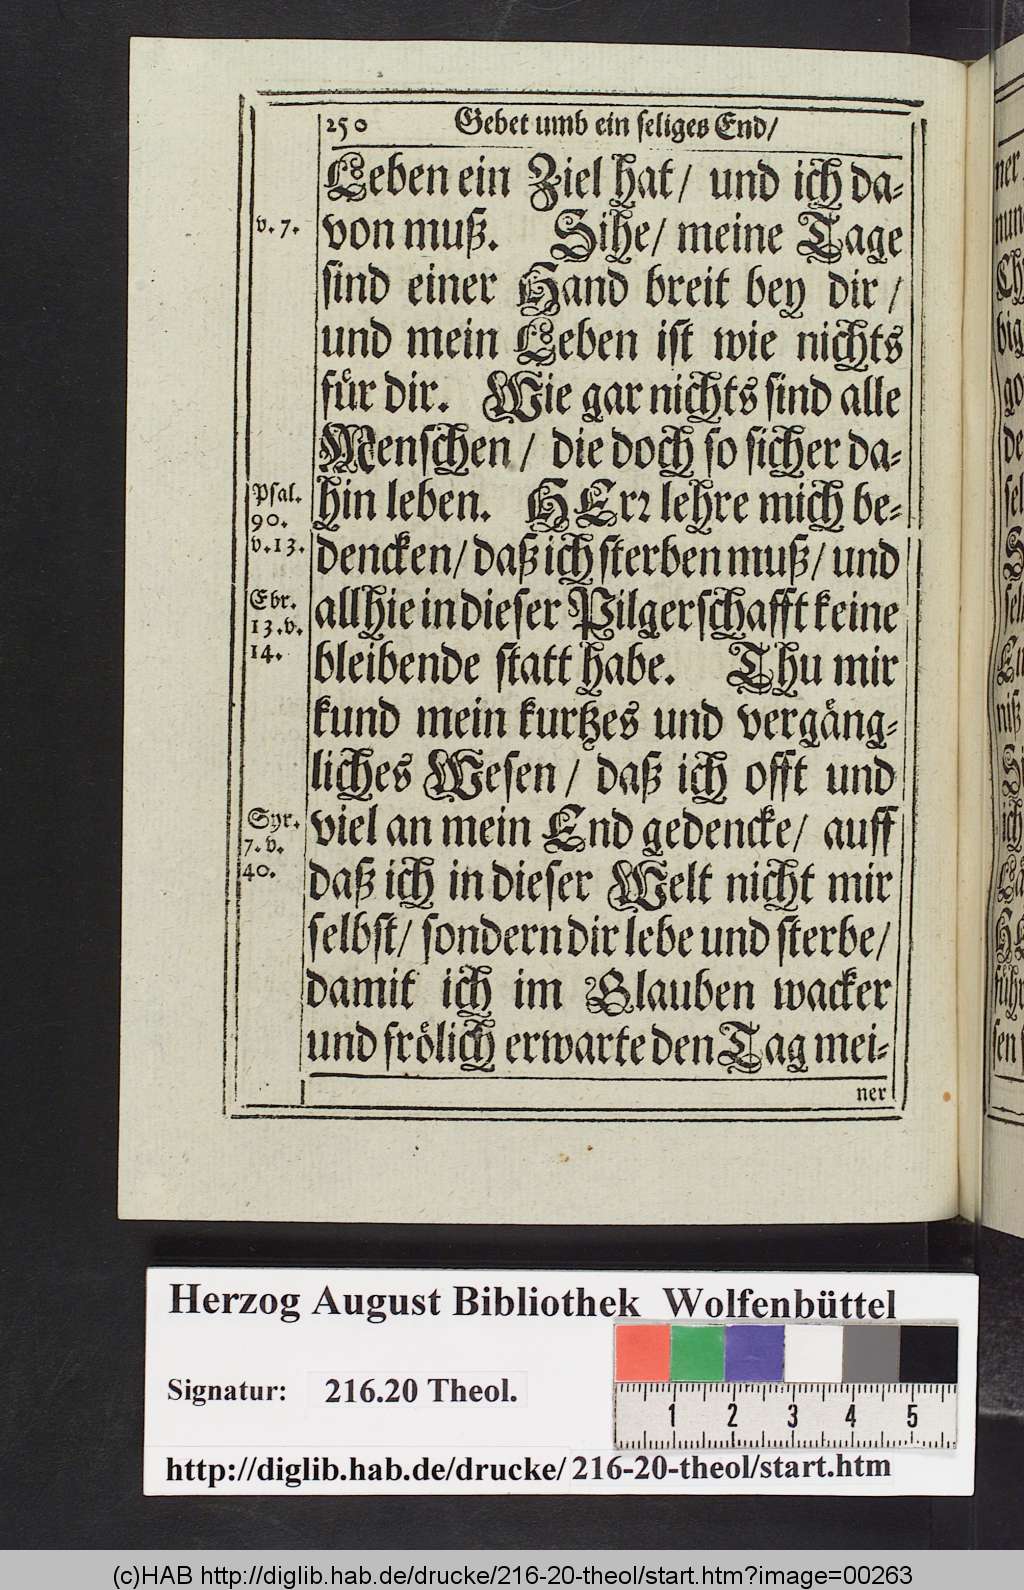 250 Gebet umb ein seliges End/
Leben ein Ziel hat/ und ich da⸗
v. 7. von muß. Sihe/ meine Tage
sind einer Hand breit bey dir/
und mein Leben ist wie nichts
für dir. Wie gar nichts sind alle
Menschen/ die doch so sicher da⸗
Psal. 90. hin leben. HErꝛ lehre mich be⸗
v. 13. dencken/ daß ich sterben muß/ und
Ebr. 13. v. allhie in dieser Pilgerschafft keine
14. bleibende statt habe. Thu mir
kund mein kurtzes und vergäng⸗
liches Wesen/ daß ich offt und
Syr. 7. v. viel an mein End gedencke/ auff
40. daß ich in dieser Welt nicht mir
selbst/ sondern dir lebe und sterbe/
damit ich im Glauben wacker
und frölich erwarte den Tag mei⸗
ner
Herzog August Bibliothek Wolfenbüttel
Signatur: 216.20 Theol.
1 2 3 4 5
http://diglib.hab.de/drucke/216-20-theol/start.htm
(c)HAB http://diglib.hab.de/drucke/216-20-theol/start.htm?image=00263